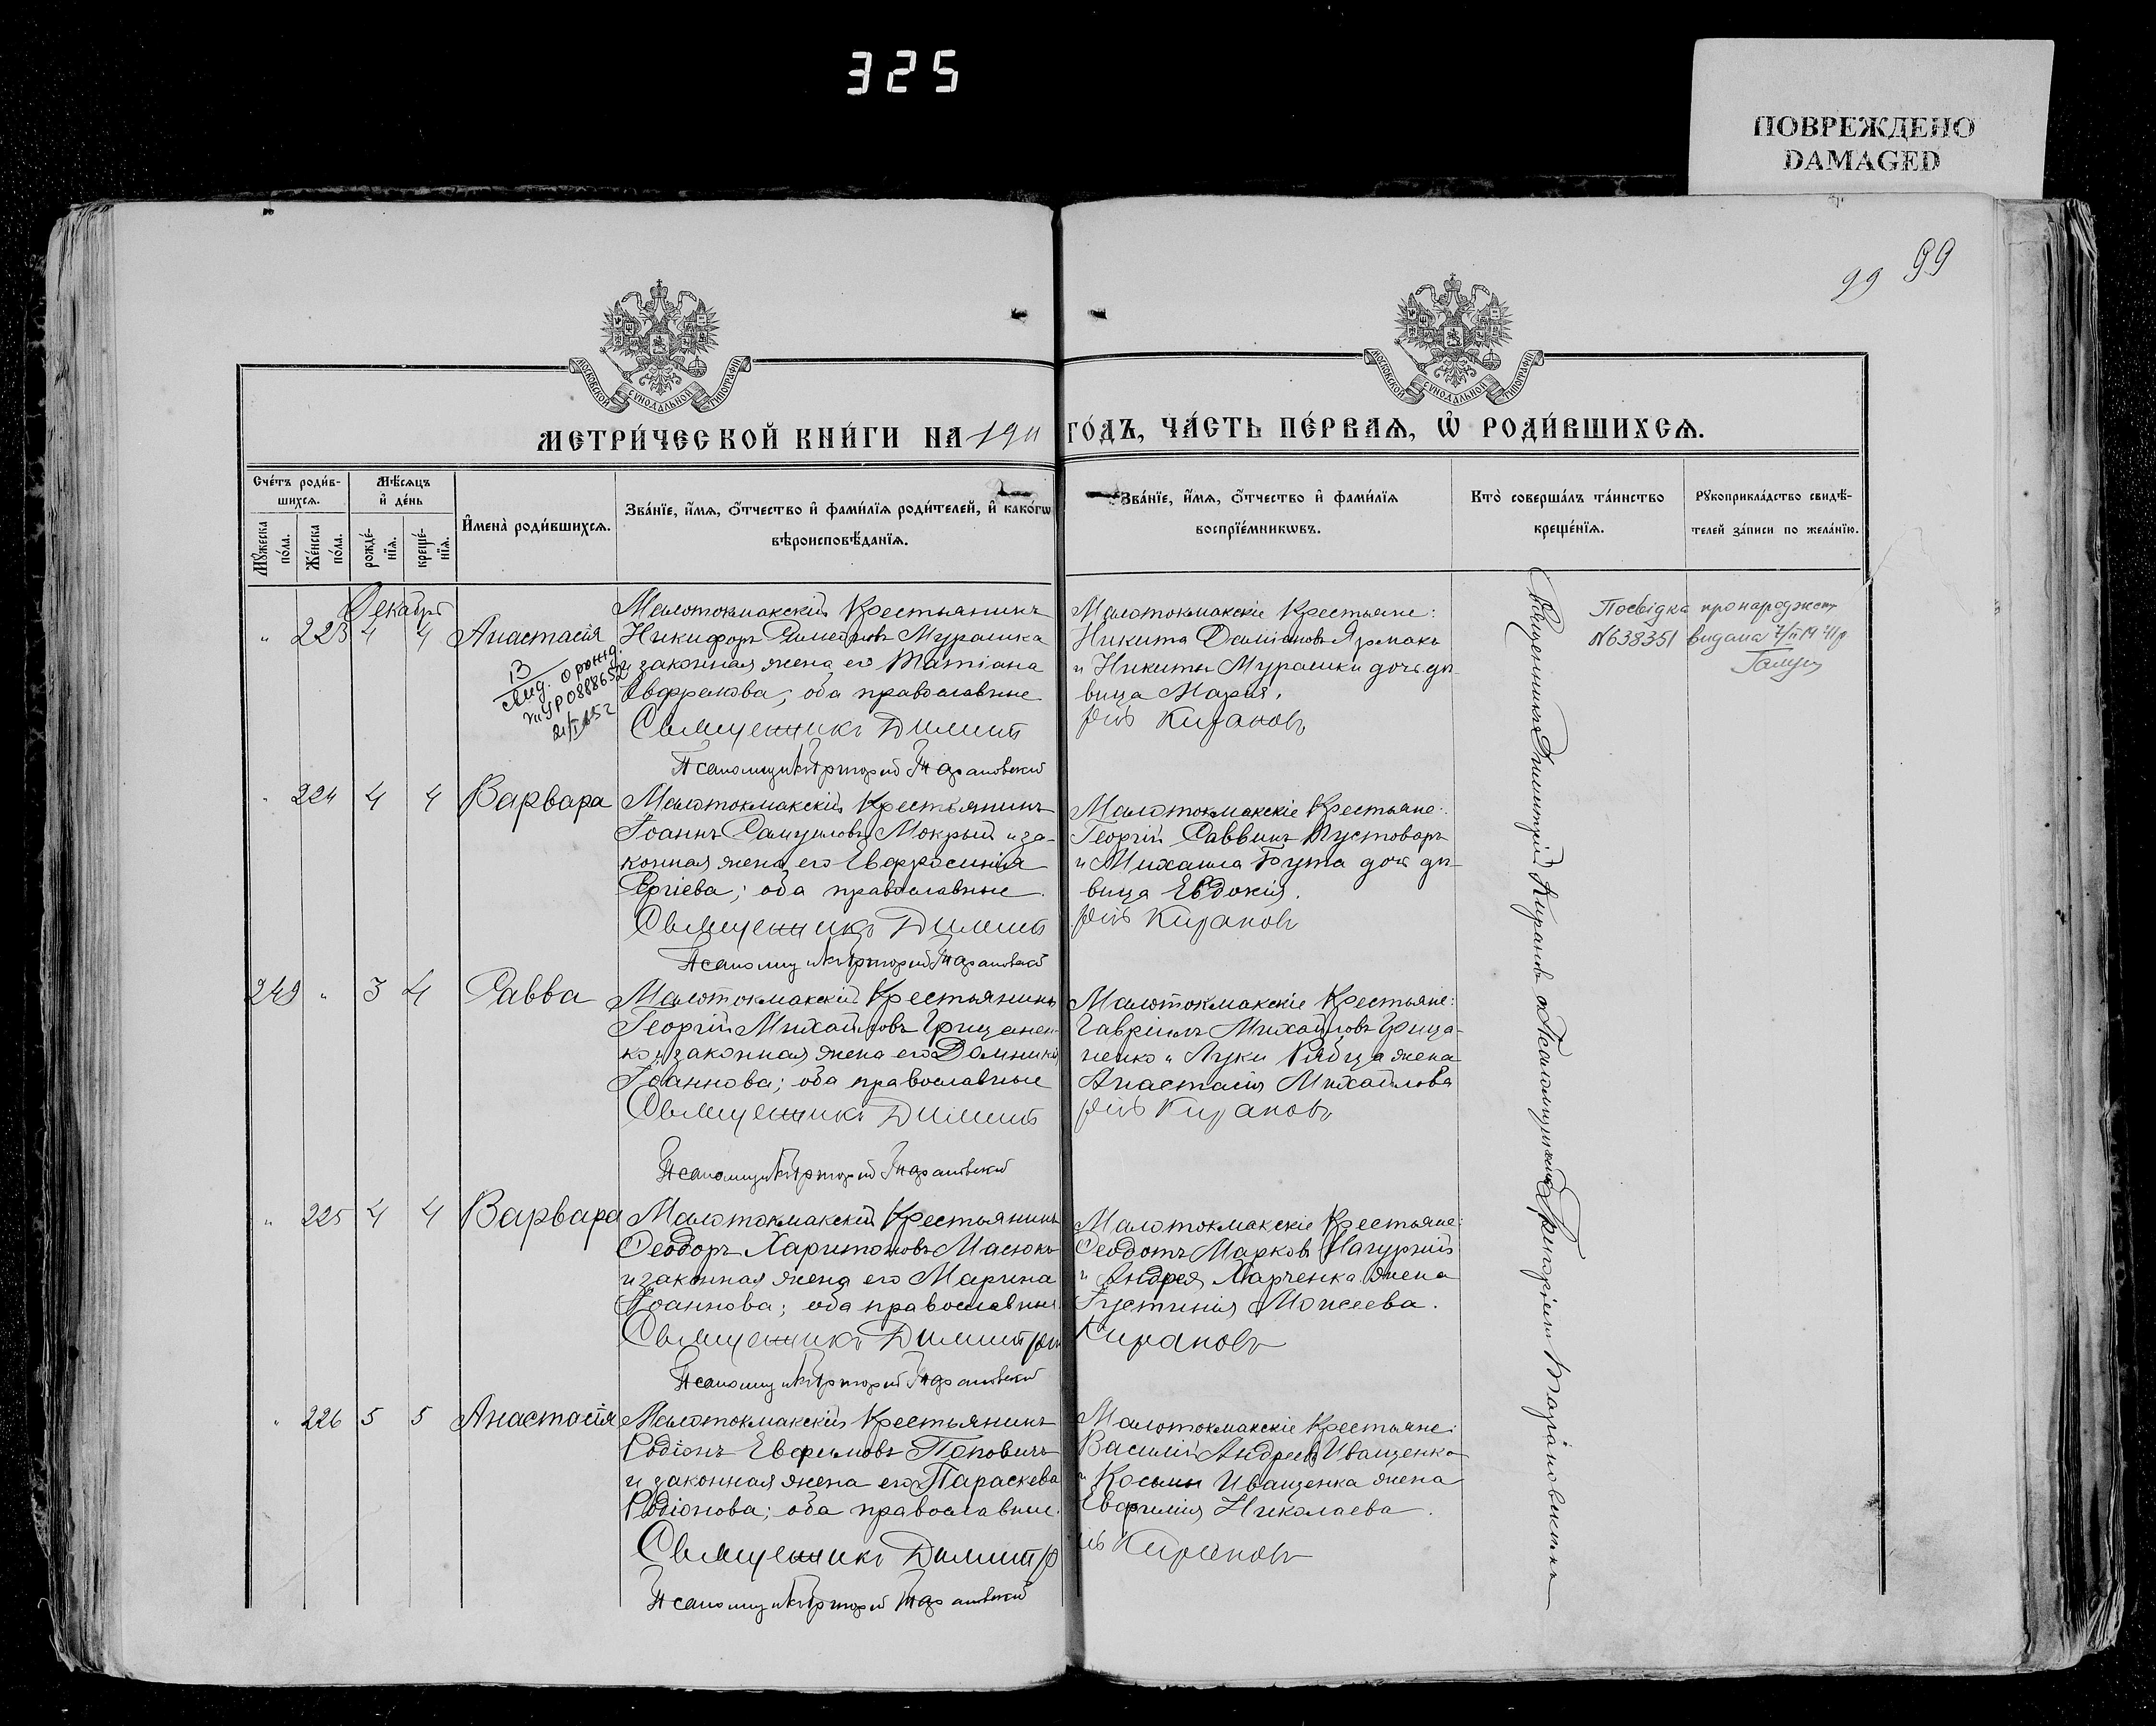 325
ПОВРЕЖДЕНО
DAMAGED
99 99
МОСКОВСКОЙ СѴНОДАЛЬНОЙ ТИПОГРАФІИ
МОСКОВСКОЙ СѴНОДАЛЬНОЙ ТИПОГРАФІИ
МЕТРИ́ЧЕСКОЙ КНИ́ГИ НА 1911 ГО́ДЪ, ЧА́СТЬ ПЕ́РВАѦ, Ѡ҆ РОДИ́ВШИХСѦ.
Сче́тъ роди́в-
шихсѧ.
Мꙋ́жеска по́ла.
Же́нска по́ла.
Мѣ́сѧцъ
и҆ де́нь
рожде́-
нїѧ.
креще́-
нїѧ.
И҆мена̀ роди́вшихсѧ.
Зва́нїе, и҆́мѧ, ѻ҆́тчество и҆ фами́лїѧ роди́телей, и҆ како́гѡ
вѣроисповѣ́данїѧ.
Зва́нїе, и҆́мѧ, ѻ҆́тчество и҆ фами́лїѧ
воспрїе́мникѡвъ.
Кто̀ соверша́лъ та́инство
креще́нїѧ.
Рꙋкоприкла́дство свидѣ́-
телей за́писи по жела́нїю.
Декабрь
" 223 4 4 Анастасія
Малотокмакскій Крестьянинъ
Никифоръ Мурашка
и законная жена его Татіана
Евфремова; оба православные
Священникъ Димит
Псаломщикъ Григорій Барановскій
Малотокмакскіе Крестьяне:
Никита Даміановъ Ярмакъ
и Никиты Мурашки дочь дѣ-
вица Марія.
рій Кирановъ
выд. о рожд.
УР 0888652
Посвідка про народжен
N638351 видана 7/II 1941 р
" 224 4 4 Варвара
Малотокмакскій Крестьянинъ
Іоаннъ Самуиловъ Мокрый и за-
конная жена его Евфросинія
Сергіева; оба православные.
Священникъ Димит
Псаломщикъ Григорій Барановскій
Малотокмакскіе Крестьяне:
Георгій Саввинъ Пустоваръ
и Михаила Бута дочь дѣ-
вица Евдокія.
рій Кирановъ
249 " 3 4 Савва
Малотокмакскій Крестьянинъ
Георгій Михайловъ Грицанен-
ко и законная жена его Домникія
Іоаннова; оба православные
Священникъ Димит
Псаломщикъ Григорій Барановскій
Малотокмакскіе Крестьяне:
Гавріилъ Михайловъ Грица-
ненко и Луки Рябца жена
Анастасія Михайлова
рій Кирановъ
" 225 4 4 Варвара
Малотокмакскій Крестьянинъ
Ѳеодоръ Харитоновъ Масюкъ
и законная жена его Марина
Іоаннова; оба православные.
Священникъ Димитрій
Псаломщикъ Григорій Барановскій
Малотокмакскіе Крестьяне:
Ѳеодотъ Марковъ Нагурній
и Андрея Харченка жена
Іустинія Моисеева.
Кирановъ
" 226 5 5 Анастасія
Малотокмакскій Крестьянинъ
Родіонъ Евфимовъ Поповичъ
и законная жена его Параскева
Родіонова; оба православные.
Священникъ Димитр
Псаломщикъ Григорій Барановскій
Малотокмакскіе Крестьяне:
Василій Андреевъ Иващенко
и Косьмы Иващенка жена
Евфимія Николаева.
ій Кирановъ
Священникъ Димитрій Кирановъ съ Псаломщикомъ Григоріемъ Барановскимъ